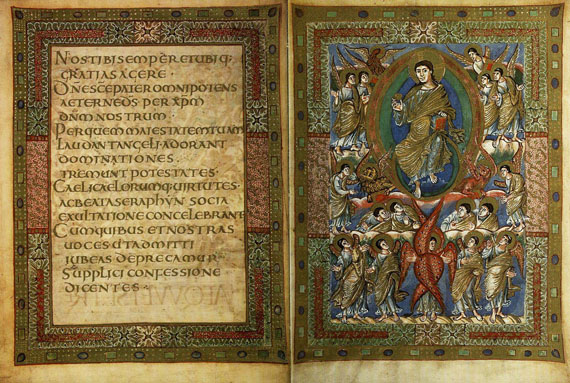 NOS TIBI SEMPER ET UBIQ;
GRATIAS AGERE·
DNE SCE PATER OMNIPOTENS
AETERNE DS PER XPM
DNM NOSTRUM·
PER QUEM MAIESTATEM TUAM
LAUDANT ANGELI· ADORANT
DOMINATIONES,
TREMUNT POTESTATES·
CAELI CAELORUMQ· UIRTUTES·
AC BEATA SERAPHYN SOCIA
EXULTATIONE CONCELEBRANT·
CUM QUIBUS ET NOSTRAS
UOCES UT ADMITTI
IUBEAS DEPRECAMUR·
SUPPLICI CONFESSIONE
DICENTES·